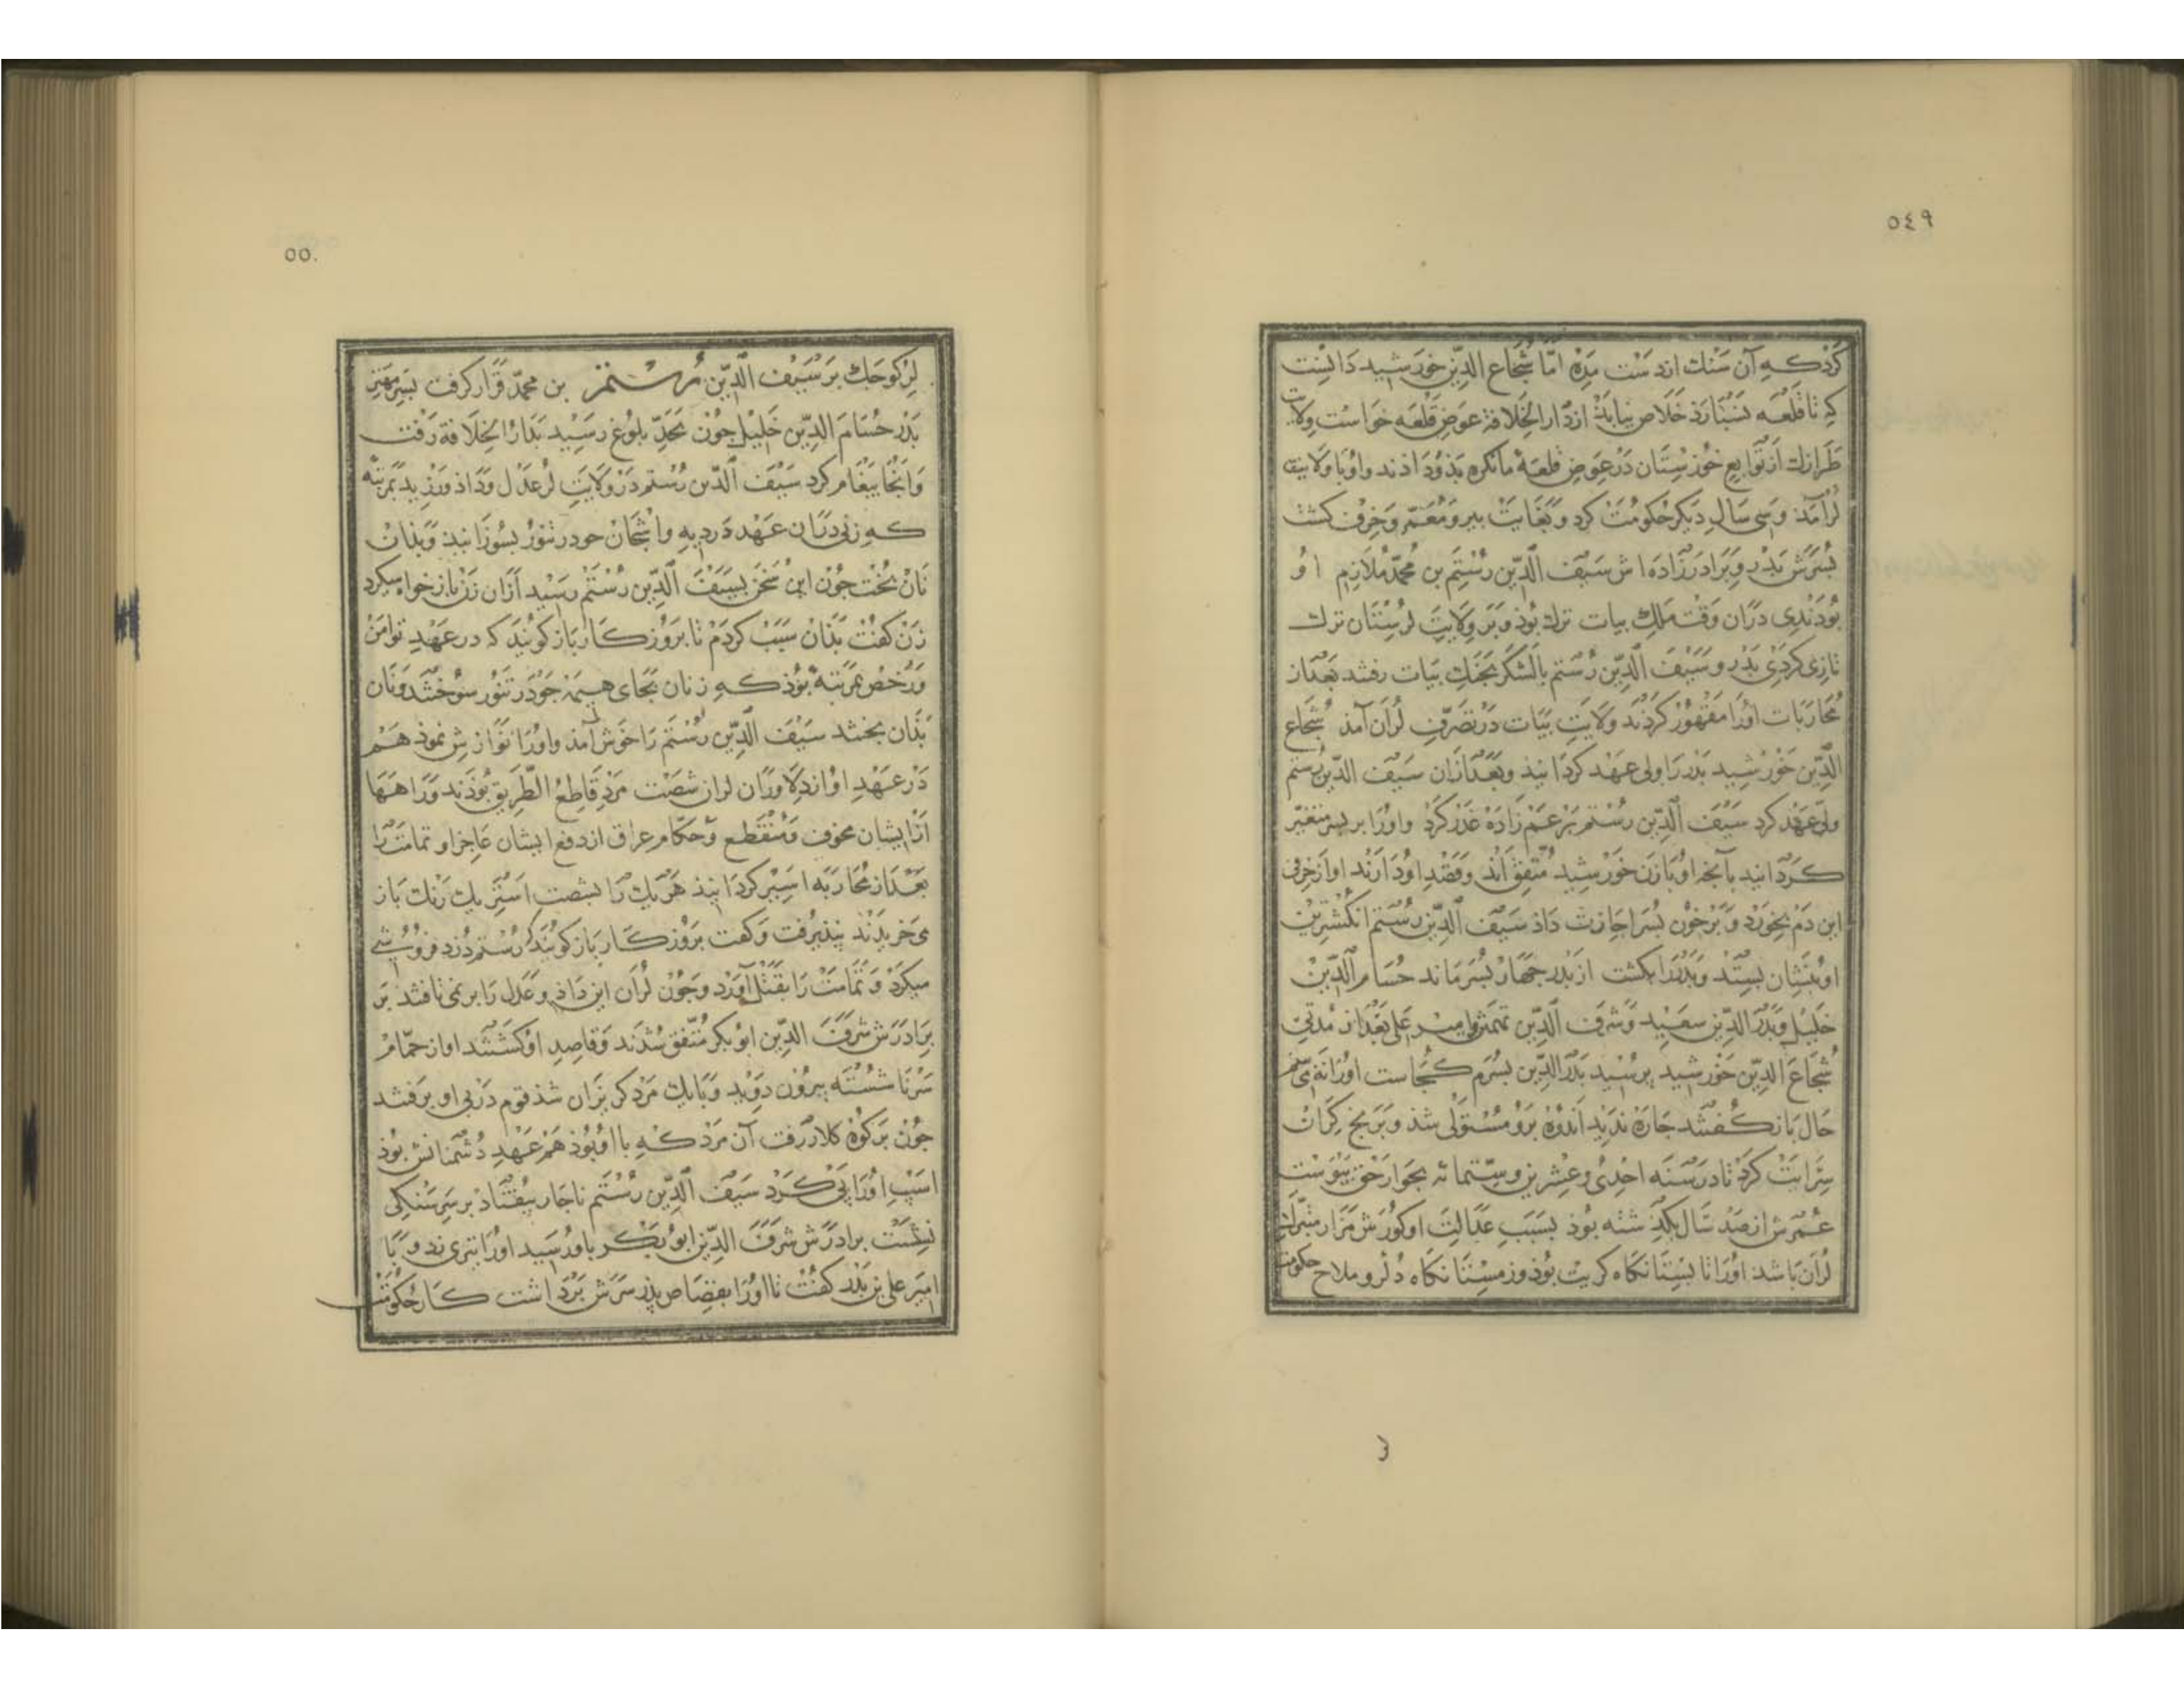 ٥٤٩
كردكه آن سنك ازدست مده امّا شجاع الدين خورشيد دانست
كه تا قلعه نسبارد خلاص نيابد ازدار الخلافة عوض قلعه خواست ولايت
طرازك از توابع خوزستان در عوض قلعهٔ مانكره بذو داذند واو با ولايت
لر آمذ و سى سال ديكر حكومت كرد و بغايت بير و معمّر و خرف كشت
بسرش بدر و برادرزاده اش سيف الدّين رستم بن محمّد ملازم او
بودندى دران وقت ملك بيات ترك بوذ و بر ولايت لرستان ترك
تازى كردى بدر و سيف الدّين رستم بالشكر بجنك بيات رفتند بعداز
محاربات اورا مقهور كردند ولايت بيات در تصرّف لران آمذ شجاع
الدّين خورشيد بدر را ولى عهد كردانيذ و بعدازان سيف الدّين رستم
ولى عهد كرد سيف الدّين رستم بر عم زاده غدر كرد و اورا بر بسر متغيّر
كردانيد بآنجه او با زن خورشيد متّفق اند و قصد او دارند او از خرفى
اين دم بخورد و بر خون بسر اجازت داذ سيف الدّين رستم انكشترين
او بنشان بستد و بدر را بكشت از بدر جهار بسر ماند حسام الدّين
خليل و بدر الدّين سعيد و شرف الدّين تهمتن و امير على بعداز مدتى
شجاع الدّين خورشيد برسيد بدر الدّين بسرم كجاست اورا نه مى بينم
حال باز كفتند جاره نديد اندوه برو مستولى شذ و بر بخ كران
سرايت كرد تا در سنه احدى و عشرين و ستمائه بجوار حق بيوست
عمرش از صد سال بكذشته بوذ بسبب عدالت او كورش مزار متبرّك
لران باشد اورا تابستانكاه كريت بوذ و زمستانكاه دلر و ملاح حكومت
٥٥٠
لر كوجك بر سيف الدّين رستم بن محمّد قرار كرفت بسر مهتر
بدر حسام الدّين خليل جون بحدّ بلوغ رسيد بدار الخلافة رفت
و آنجا بيغام كرد سيف الدّين رستم در ولايت لر عدل و داذ ورزيد بمرتبه
كه زنى دران عهد در ديه واشجان جو در تنور بسوزانيذ و بذان
نان بخت جون اين سخن بسيف الدّين رستم رسيد ازان زن باز خواست كرد
زن كفت بذان سبب كردم تا بروزكار باز كويند كه در عهد تو امن
و رخص بمرتبه بوذ كه زنان بجاى هيمه جو در تنور سوختند و نان
بذان بختند سيف الدّين رستم را خوش آمذ و اورا نوازش نموذ هم
در عهد او از دلاوران لران شصت مرد قاطع الطريق بوذند و راهها
از ايشان مخوف و منقطع و حكام عراق از دفع ايشان عاجز او تمامت را
بعداز محاربه اسير كردانيذ هر يك را بشصت استر يك رنك باز
مى خريدند نبذيرفت و كفت بروزكار باز كويند كه رستم دزد فروشى
ميكرد و تمامت را بقتل آورد و جون لران اين داذ و عدل را بر نمى تافتند بر
برادرش شرف الدّين ابو بكر متّفق شدند و قاصد او كشتند او از حمّام
سر ناشسته بيرون دويد و با يك مرد كريزان شذ قوم در بى او برفتند
جون بر كوه كلار رفت آن مرد كه با او بوذ هم عهد دشمنانش بوذ
اسب اورا بى كرد سيف الدّين رستم ناجار بيفتاد بر سر سنكى
نشست برادرش شرف الدّين ابو بكر باو رسيد اورا تيرى زد و با
امير على بن بدر كفت تا اورا بقصاص بذر سرش برداشت كار حكومت